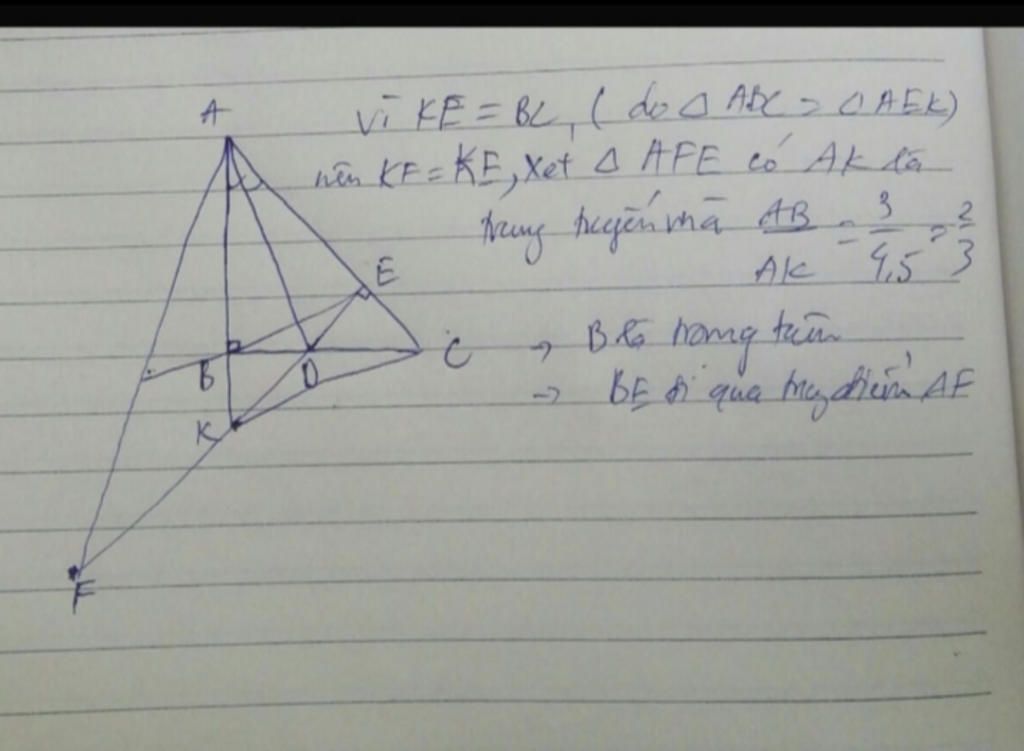 A
Vì KE = BC, (do △ ABC = △ AEK)
nên KF = KE, xét △ AFE có AK là
trung tuyến mà AB/AK = 3/4,5 = 2/3
E
→ B là trọng tâm
C
B
D
→ BE đi qua trung điểm AF
K
F